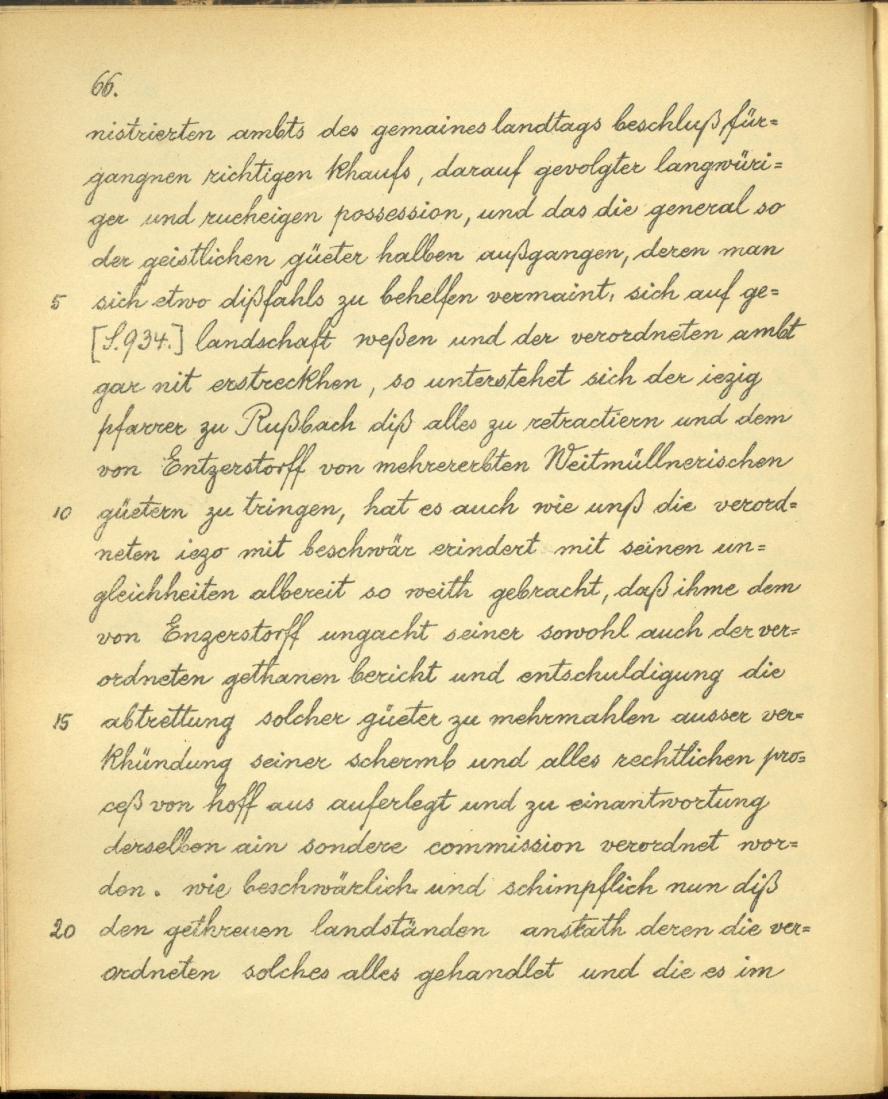 66.
nistrierten ambts des gemaines landtags beschluß für=
gangnen richtigen khaufs, darauf gevolgter langwüri=
ger und rucheigen possession, und das die general so
der geistlichen güeter halben außgangen, deren man
5 sich etwo dißfahls zu behelfen vermaint, sich auf ge=
[S.934.] landschaft weßen und der verordneten ambt
gar nit erstreckhen, so unterstehet sich der iezig
pfarrer zu Rußbach diß alles zu retractiern und dem
von Entzerstorff von mehrererbten Weitmüllnerischen
10 güetern zu tringen, hat es auch wie unß die verord=
neten iezo mit beschwär erindert mit seinen un=
gleichheiten albereit so weith gebracht, daß ihme dem
von Enzerstorff ungacht seiner sowohl auch der ver=
ordneten gethanen bericht und entschuldigung die
15 abtrettung solcher güeter zu mehrmahlen ausser ver=
khündung seiner schermb und alles rechtlichen pro=
ceß von hoff aus auferlegt und zu einantwortung
derselben ain sondere commission verordnet wor=
den. wie beschwärlich und schimpflich nun diß
20 den gethreuen landständen anstath deren die ver=
ordneten solches alles gehandlet und die es im